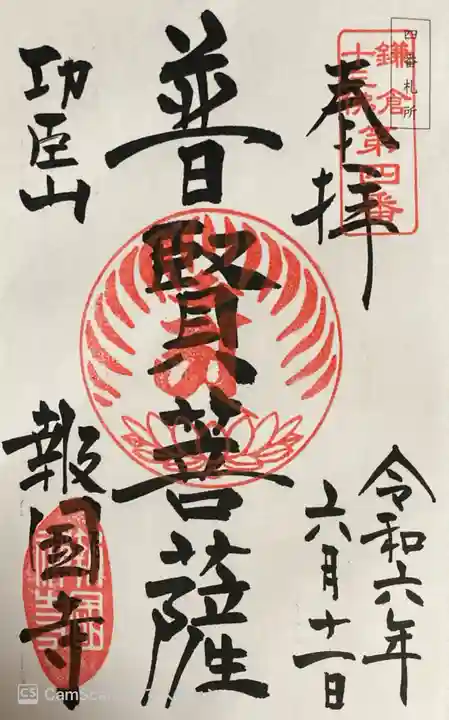 四番札所
鎌倉
十三佛第四番
奉拝
令和六年
六月十一日
普賢菩薩
功臣山
報国寺
CS CamSc